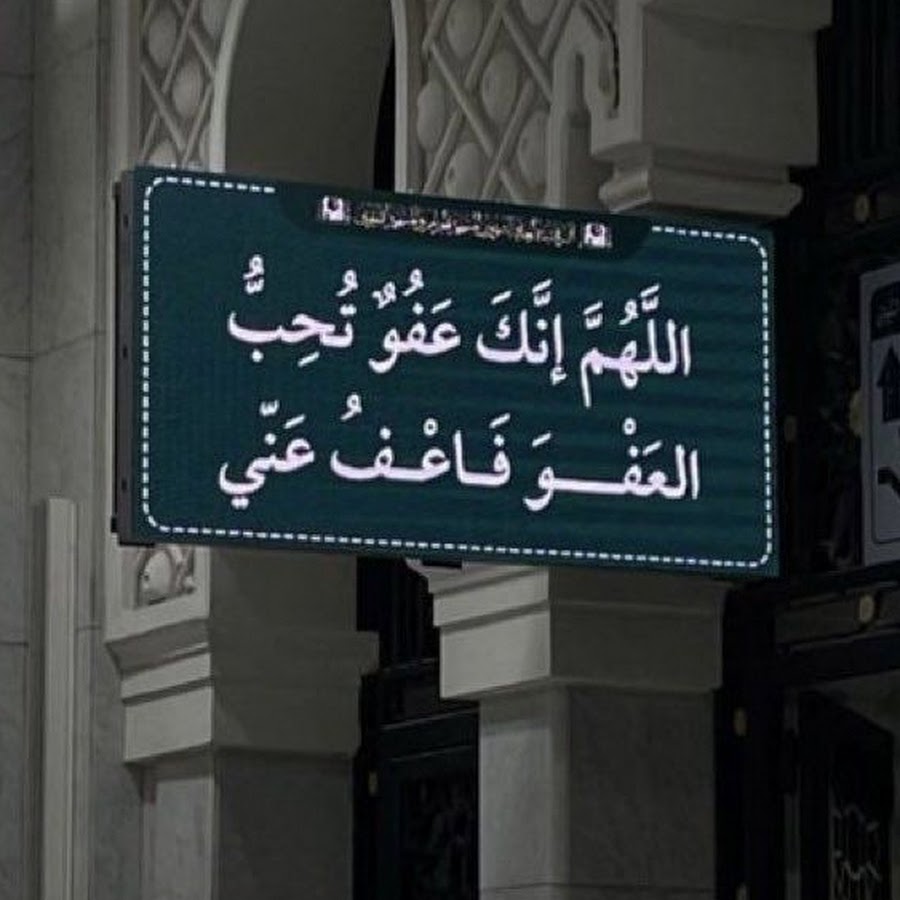 اللَّهُمَّ إِنَّكَ عَفُوٌّ تُحِبُّ
العَفْــــوَ فَـاعْـفُ عَنّي